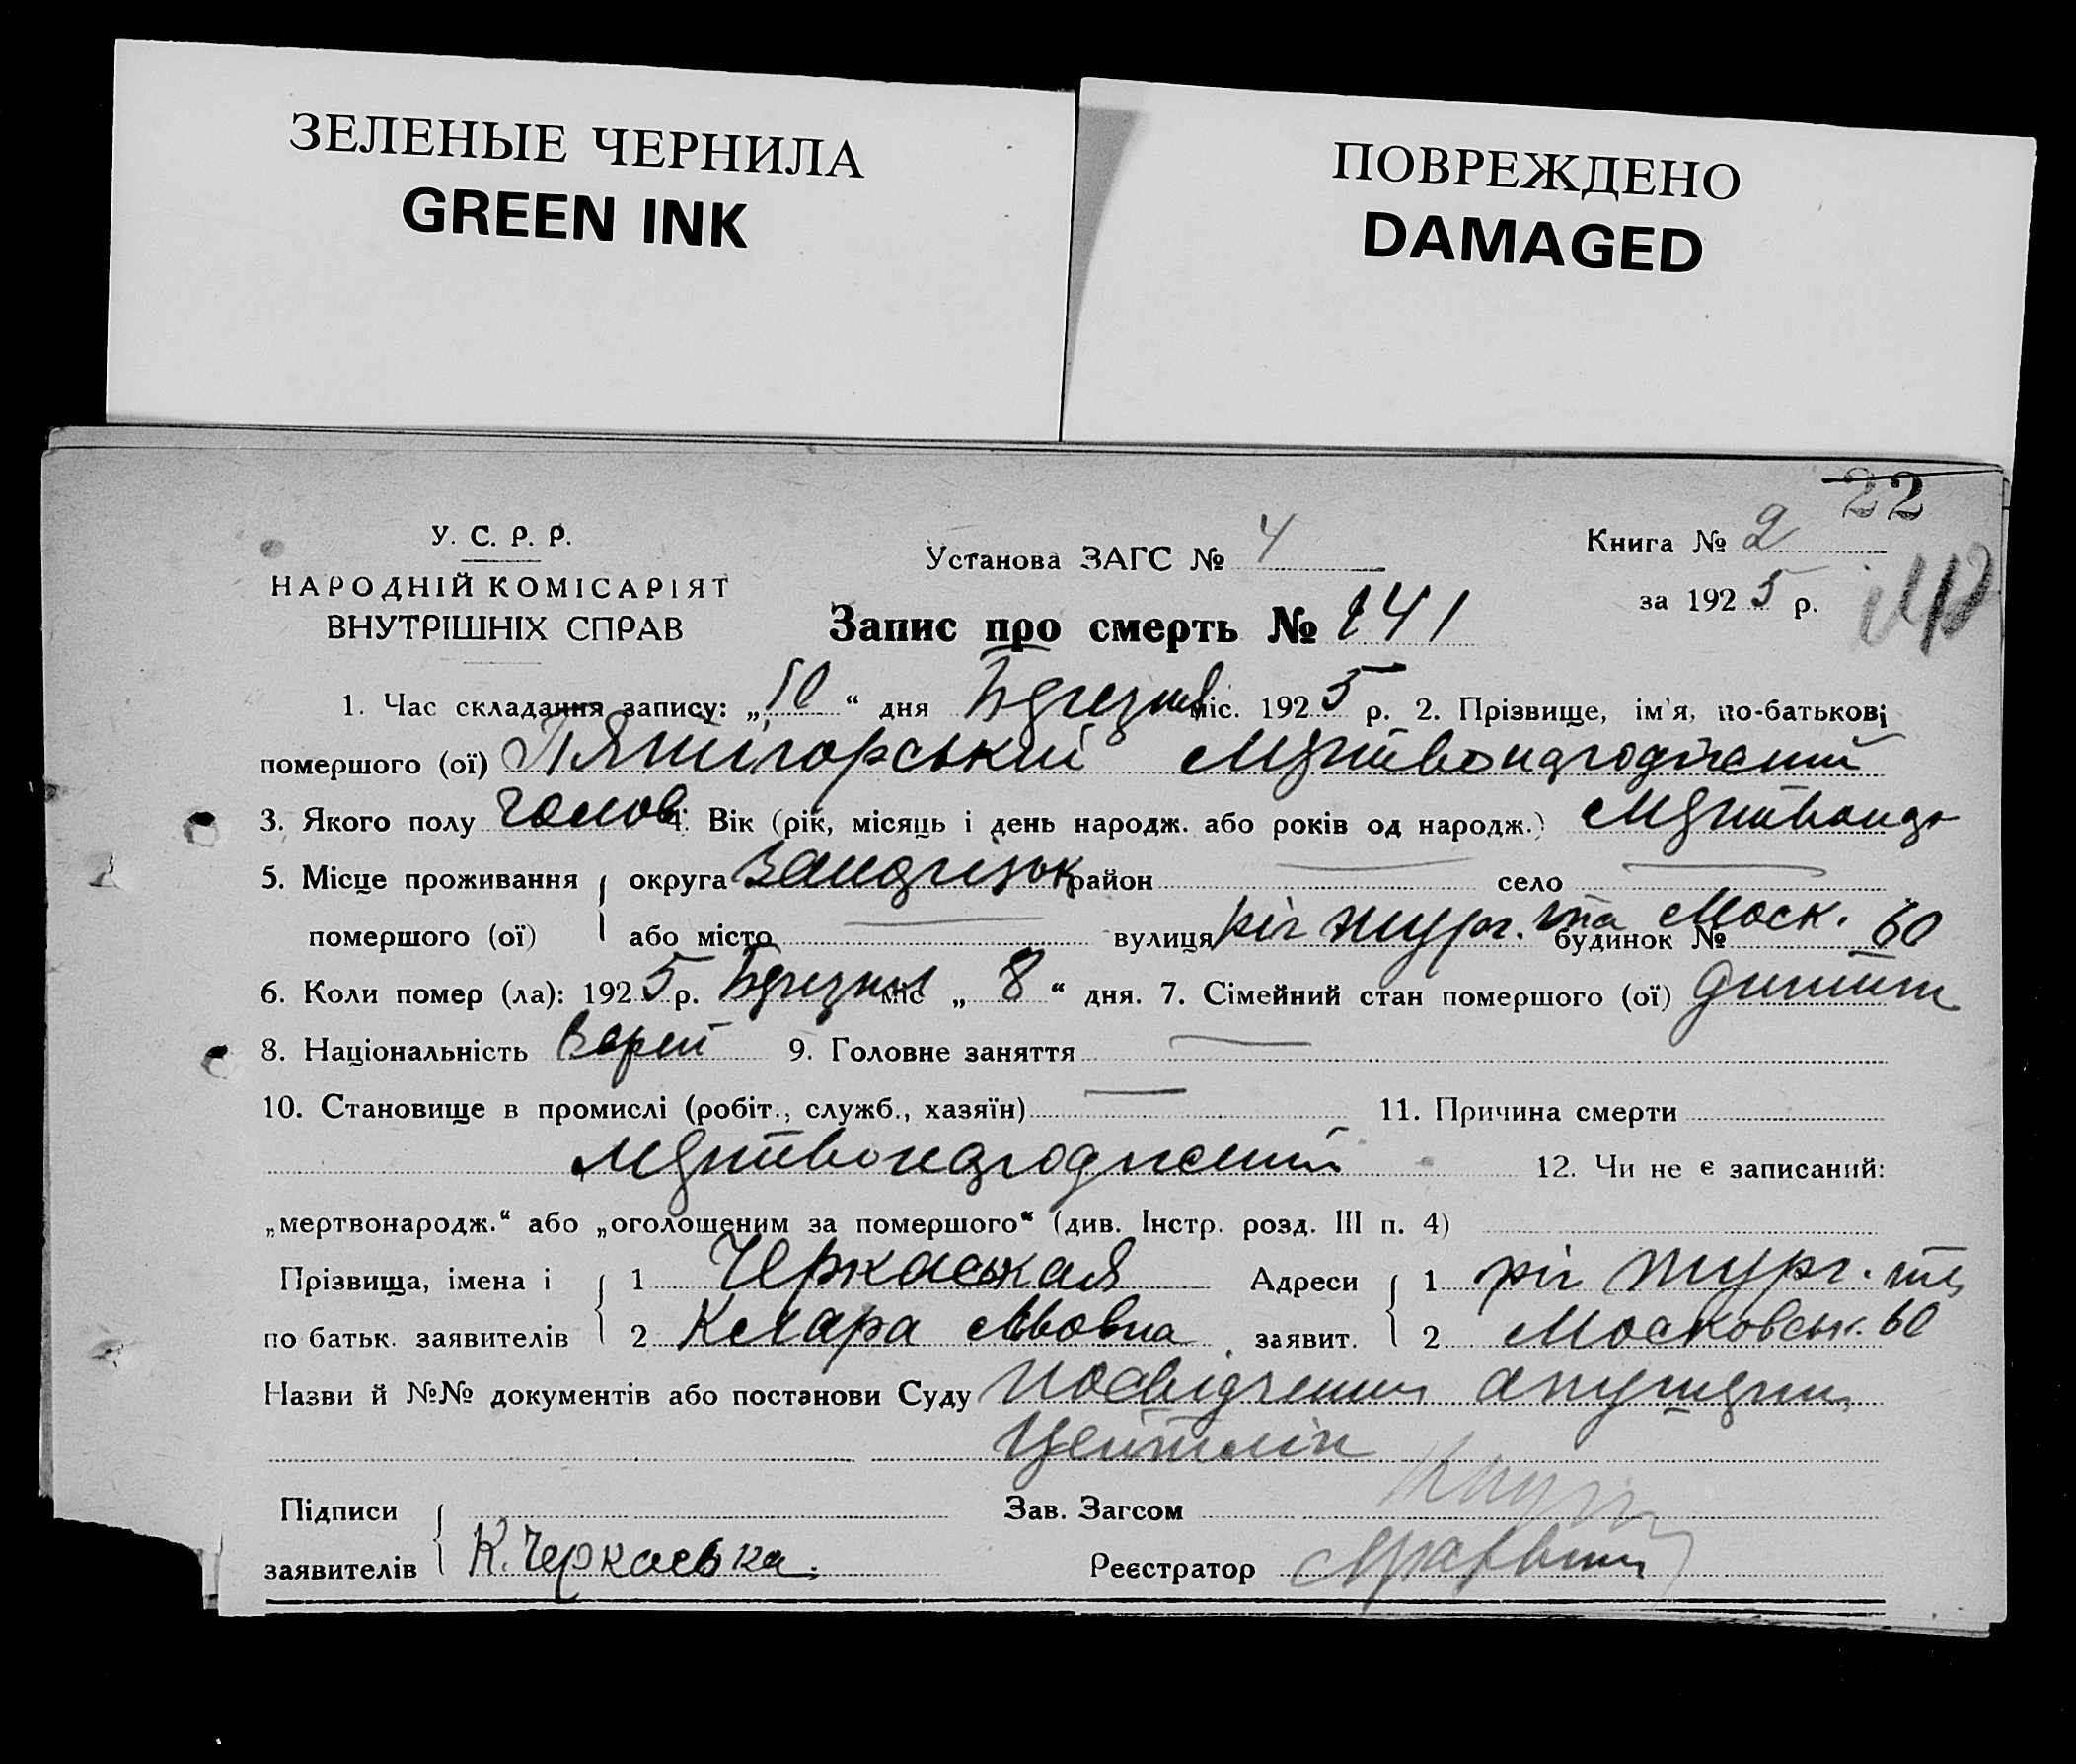 ЗЕЛЕНЫЕ ЧЕРНИЛА
GREEN INK
ПОВРЕЖДЕНО
DAMAGED
22
У. С. Р. Р.
НАРОДНІЙ КОМІСАРІЯТ
ВНУТРІШНІХ СПРАВ
Установа ЗАГС № 4
Книга № 2
за 1925 р.
Запис про смерть № 241
1. Час складання запису: „10“ дня Березня міс. 1925 р. 2. Прізвище, ім'я, по-батькові
помершого (ої) Пятігорський Мертвонароджений
3. Якого полу чолов. 4. Вік (рік, місяць і день народж. або років од народж.) Мертвонар
5. Місце проживання округа район село
помершого (ої) або місто вулиця ріг та Моск. будинок № 60
6. Коли помер (ла): 1925 р. Березня міс „8“ дня. 7. Сімейний стан помершого (ої) дитина
8. Національність Еврей 9. Головне заняття
10. Становище в промислі (робіт., служб., хазяїн) 11. Причина смерти
мертвонароджений 12. Чи не є записаний:
„мертвонародж.“ або „оголошеним за помершого“ (див. Інстр. розд. III п. 4)
Прізвища, імена і 1 Черкаськая Адреси 1 ріг та
по батьк. заявителів 2 Клара Львовна заявит. 2 Московськ. 60
Назви й №№ документів або постанови Суду Посвідчення акушерки
Цейтлін
Підписи Зав. Загсом
заявителів К. Черкаська. Реєстратор